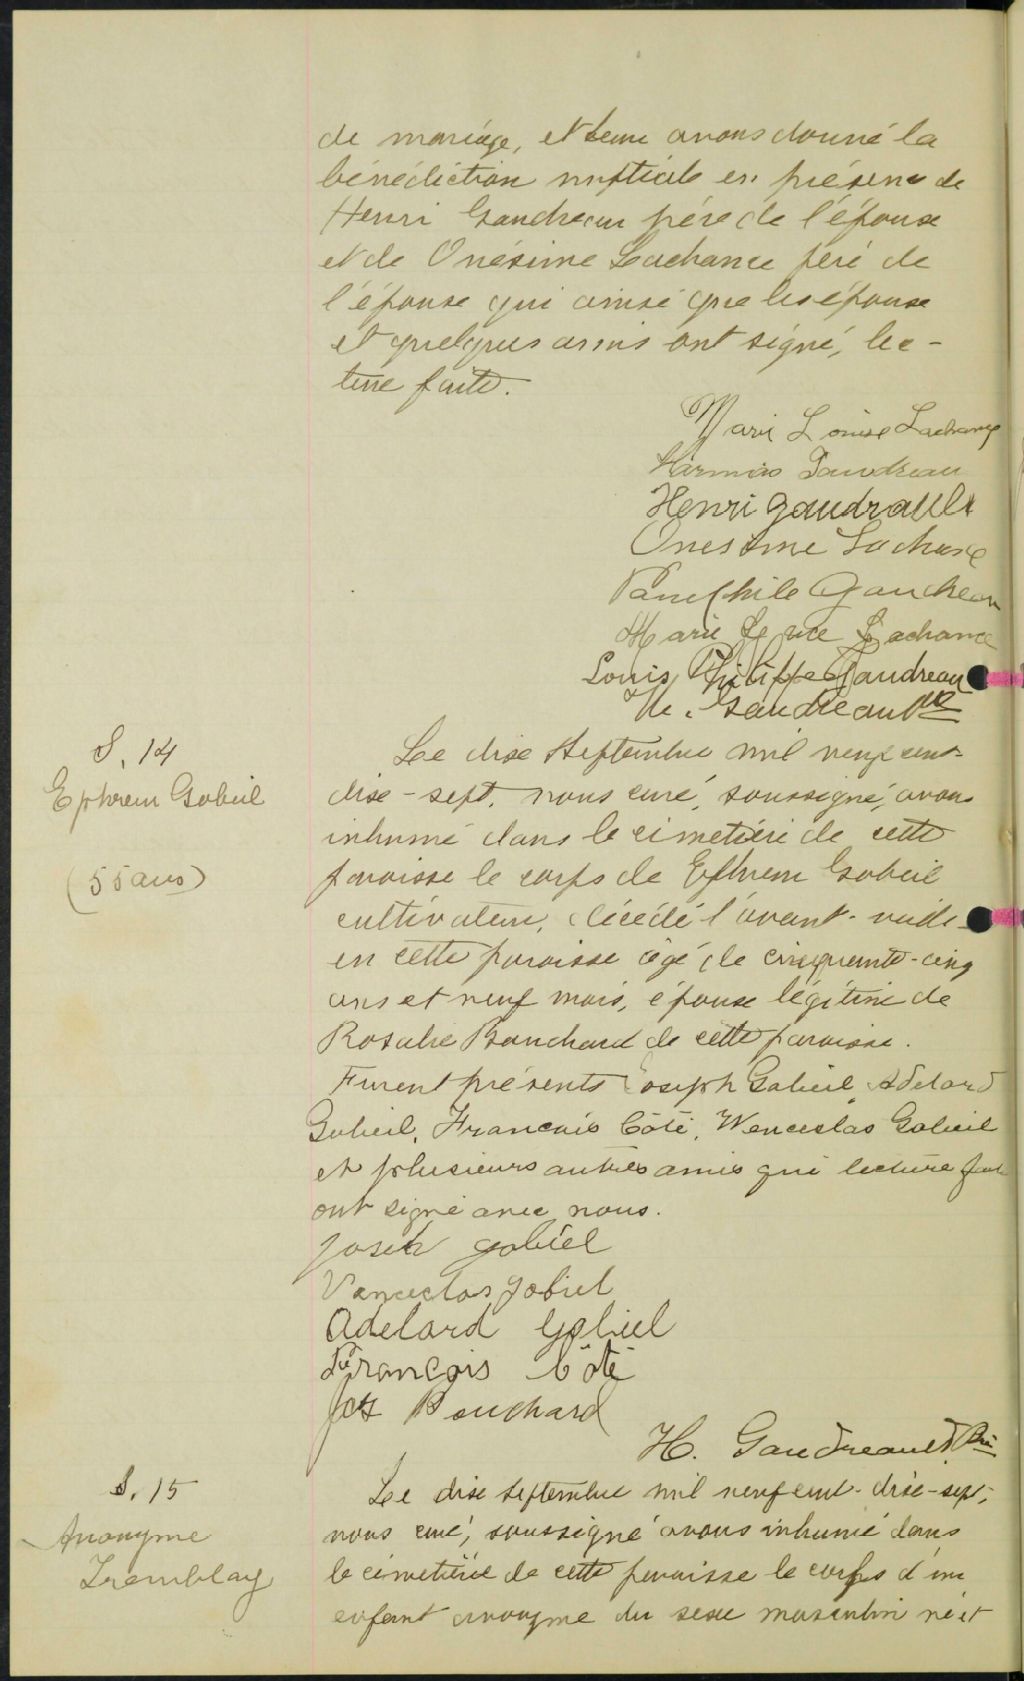 de mariage, et leur avons donné la
bénédiction nuptiale en présence de
Henri Gaudreau père de l'épouse
et de Onésime Lachance père de
l'épouse qui ainsi que les épouse
et quelques amis ont signé, lec-
ture faite.
Marie Louise Lachance
Hermias Gaudreau
Henri Gaudrault
Onesime Lachance
Pamphile Gaudreau
Marie Lachance
Louis Philippe Gaudreau
H. Gaudreau Ptre
S. 14
Ephrem Gobeil
(55 ans)
Le dix Septembre mil neuf cent-
dix-sept, nous curé, soussigné, avons
inhumé dans le cimetière de cette
paroisse le corps de Ephrem Gobeil
cultivateur, décédé l'avant-veille
en cette paroisse âgé de cinquante-cinq
ans et neuf mois, époux légitime de
Rosalie Bouchard de cette paroisse.
Furent présents Joseph Gobeil, Adelard
Gobeil, François Côté, Wenceslas Gobeil
et plusieurs autres amis qui lecture faite
ont signé avec nous.
Joseh gobiel
Venceclas gobiel
Adelard Gobiel
François Côté
Jos Bouchard
H. Gaudreault Ptre
S. 15
Anonyme
Tremblay
Le dix septembre mil neuf cent-dix-sept,
nous curé, soussigné avons inhumé dans
le cimetière de cette paroisse le corps d'un
enfant anonyme du sexe masculin né et